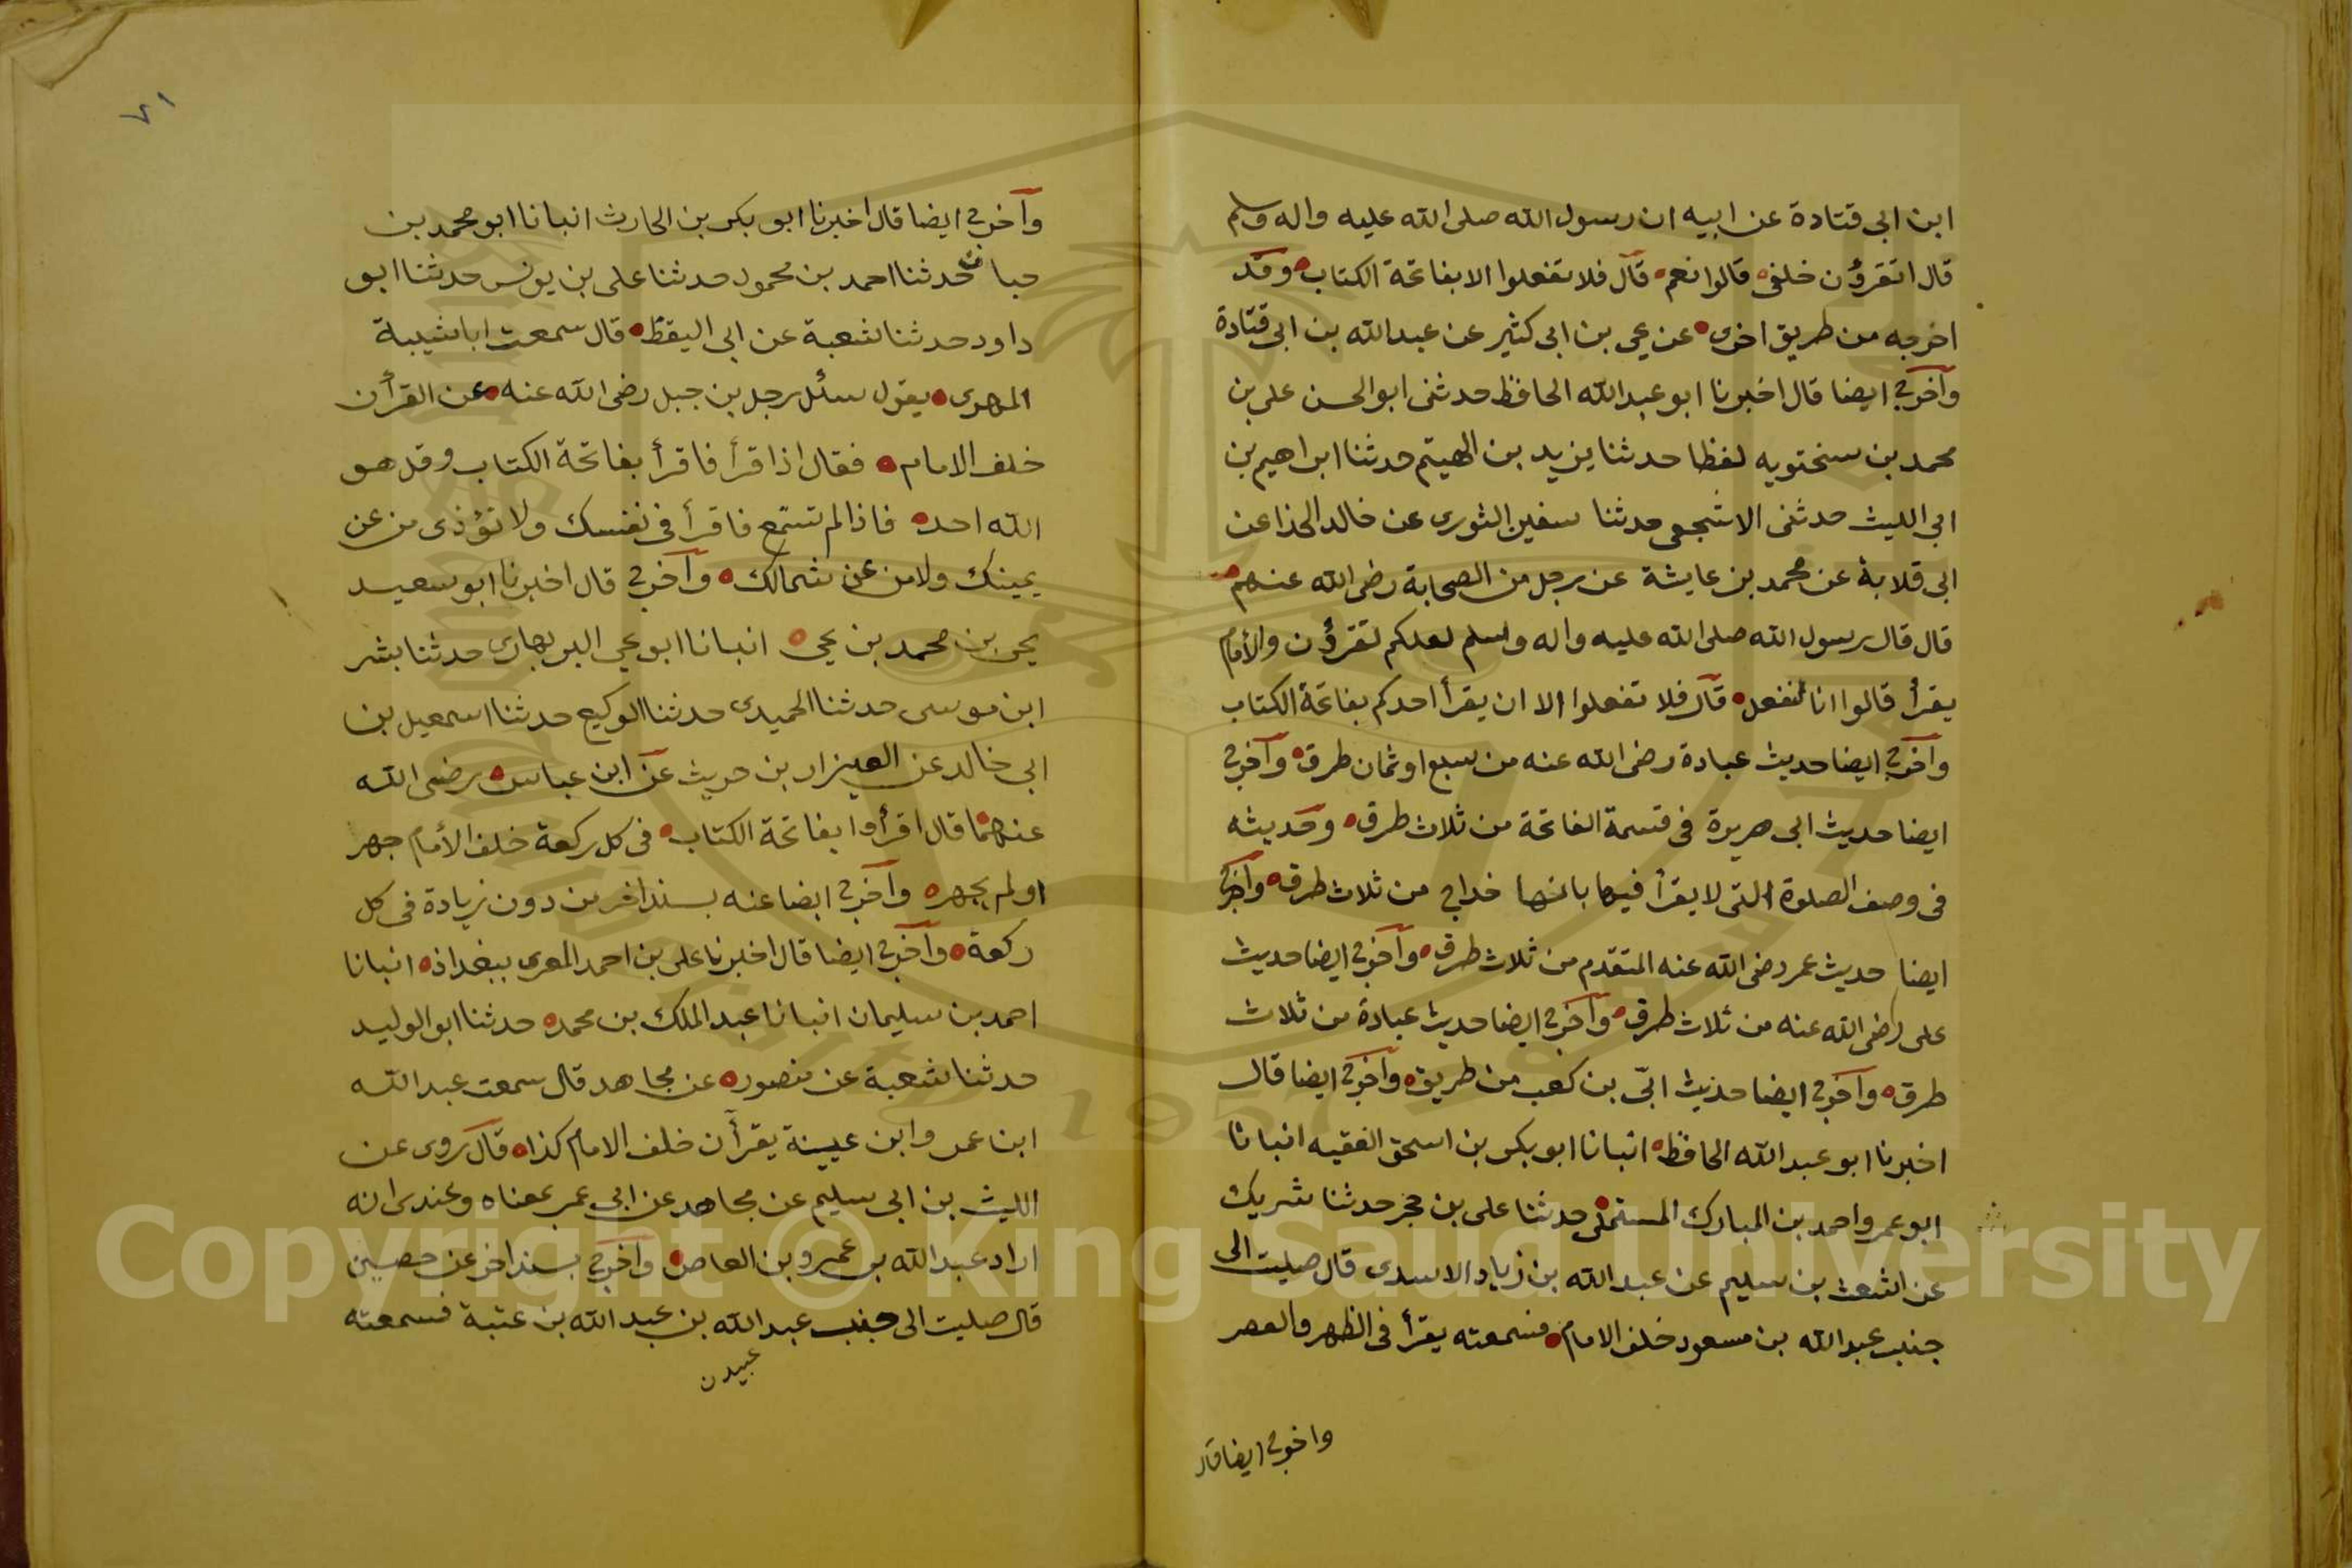 ابن ابى قتادة عن ابيه ان رسول الله صلى الله عليه واله وسلم
قال اتقرؤن خلفى قالوا نعم قال فلا تفعلوا الا بفاتحة الكتاب وقد
اخرجه من طريق اخرى عن يحى بن ابى كثير عن عبد الله بن ابى قتادة
وآخرج ايضا قال اخبرنا ابو عبد الله الحافظ حدثنى ابو الحسن على بن
محمد بن سختويه لفظا حدثنا يزيد بن الهيتم حدثنا ابراهيم بن
ابى الليث حدثنى الاشجعى حدثنا سفين الثورى عن خالد الحذا عن
ابى قلابة عن محمد بن عايشة عن رجل من الصحابة رضى الله عنهم
قال قال رسول الله صلى الله عليه واله وسلم لعلكم تقرؤن والأمام
يقرأ قالوا انا لنفعل قال فلا تفعلوا الا ان يقرأ احدكم بفاتحة الكتاب
وآخرج ايضا حديث عبادة رضى الله عنه من سبع او ثمان طرق وآخرج
ايضا حديث ابى هريرة فى قسمة الفاتحة من ثلاث طرق وحديثه
فى وصف الصلوة التى لا يقرأ فيها بانها خداج من ثلاث طرق وآخرج
ايضا حديث عمر رضى الله عنه المتقدم من ثلاث طرق وآخرج ايضا حديث
على رضى الله عنه من ثلاث طرق وآخرج ايضا حديث عبادة من ثلاث
طرق وآخرج ايضا حديث ابىّ بن كعب من طريق وآخرج ايضا قال
اخبرنا ابو عبد الله الحافظ انبانا ابو بكر بن اسحق الفقيه انبانا
ابو عمرو احمد بن المبارك المستملى حدثنا على بن حجر حدثنا شريك
عن اشعث بن سليم عن عبد الله بن زياد الاسدى قال صليت الى
جنب عبد الله بن مسعود خلف الامام فسمعته يقرأ فى الظهر والعصر
واخرج ايضا قال
٧١
وآخرج ايضا قال اخبرنا ابو بكر بن الحارث انبانا ابو محمد بن
حبان حدثنا احمد بن محمود حدثنا على بن يونس حدثنا ابو
داود حدثنا شعبة عن ابى اليقظ قال سمعت ابا شيبة
المهرى يقول سئل رجل بن جبل رضى الله عنه عن القرأن
خلف الامام فقال اذا قرأ فاقرأ بفاتحة الكتاب وقل هو
الله احد فاذا لم تستمع فاقرأ فى نفسك ولا تؤذى من عن
يمينك ولا من عن شمالك وآخرج قال اخبرنا ابو سعيد
يحى بن محمد بن يحى انبانا ابو يحي البربهارى حدثنا بشر
ابن موسى حدثنا الحميدى حدثنا الوكيع حدثنا اسمعيل بن
ابى خالد عن العيزار بن حريث عن ابن عباس رضى الله
عنهما قال اقرأوا بفاتحة الكتاب فى كل ركعة خلف الأمام جهر
او لم يجهر وآخرج ايضا عنه بسند اخر من دون زيادة فى كل
ركعة وآخرج ايضا قال اخبرنا على بن احمد المعرى ببغداذ انبانا
احمد بن سليمان انبانا عبد الملك بن محمد حدثنا ابو الوليد
حدثنا شعبة عن منصور عن مجاهد قال سمعت عبد الله
ابن عمر وابن عيينة يقرأن خلف الامام كذا قال روى عن
الليث بن ابى سليم عن مجاهد عن ابى عمر بمعناه وعندى انه
اراد عبد الله بن عمرو بن العاص وآخرج بسند اخر عن حصين
قال صليت الى جنب عبد الله بن عبد الله بن عتبة فسمعته
عبيد ن
Copyright © King Saud University
1957